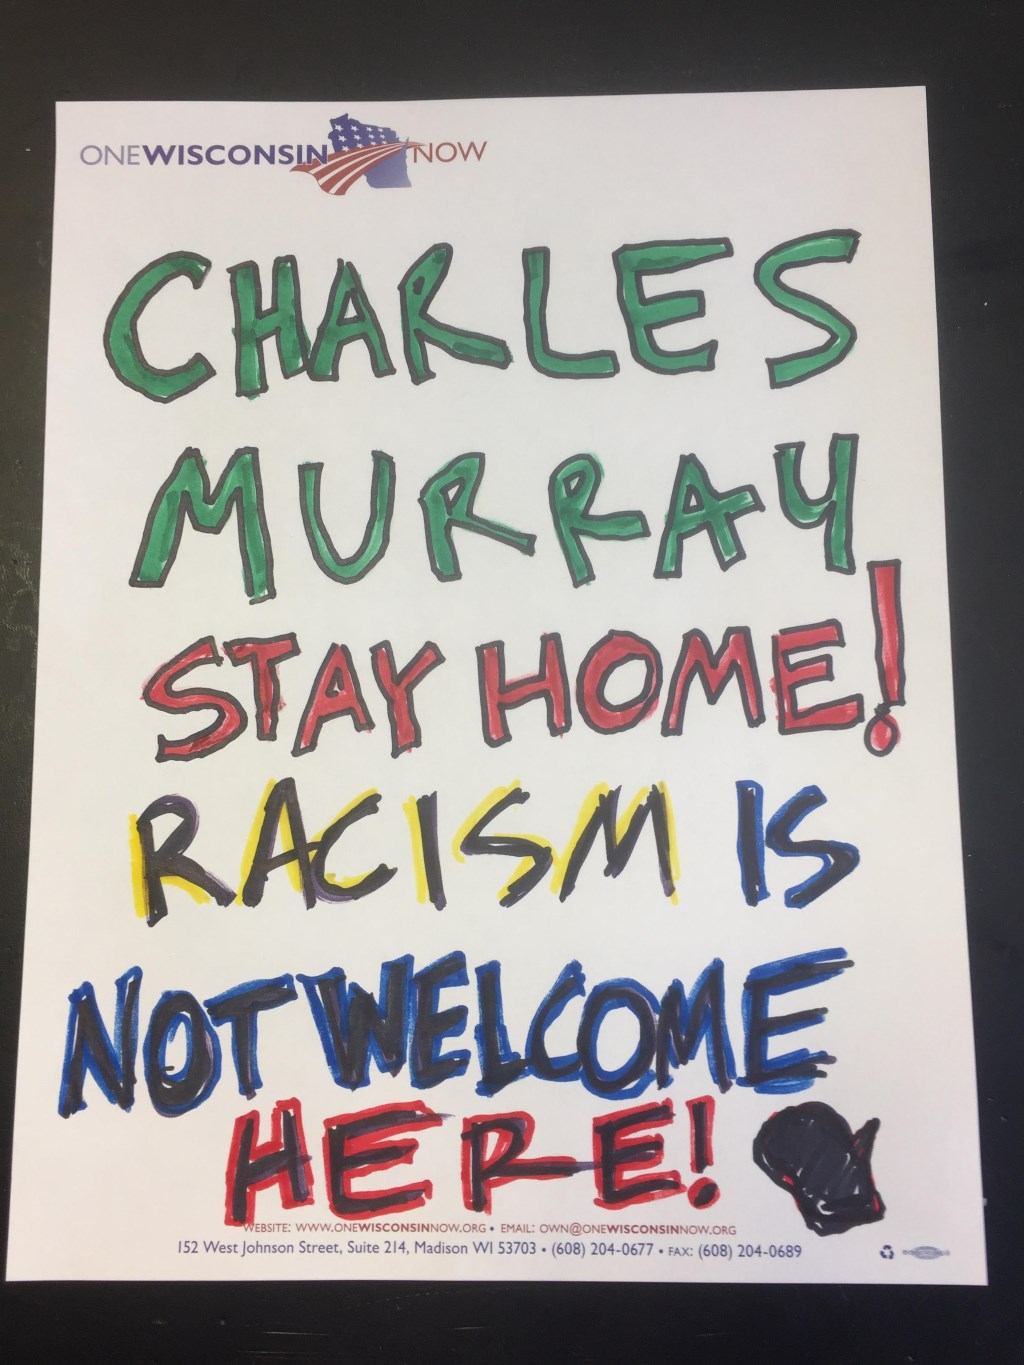 ONEWISCONSIN NOW
CHARLES
MURRAY
STAY HOME!
RACISM IS
NOT WELCOME
HERE!
WEBSITE: WWW.ONEWISCONSINNOW.ORG • EMAIL: OWN@ONEWISCONSINNOW.ORG
152 West Johnson Street, Suite 214, Madison WI 53703 • (608) 204-0677 • FAX: (608) 204-0689